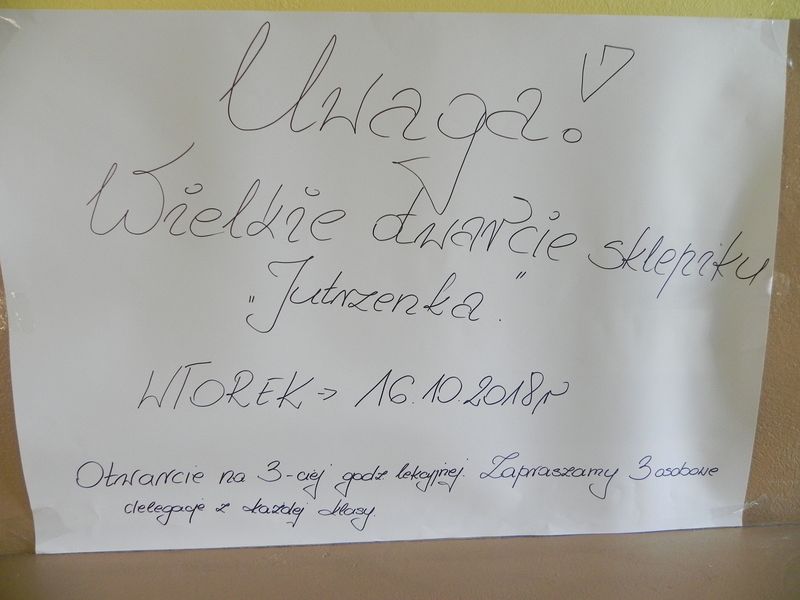 Uwaga!
Wielkie otwarcie sklepiku
„Jutrzenka".
WTOREK → 16.10.2018r
Otwarcie na 3-ciej godz lekcyjnej. Zapraszamy 3 osobowe
delegacje z każdej klasy.